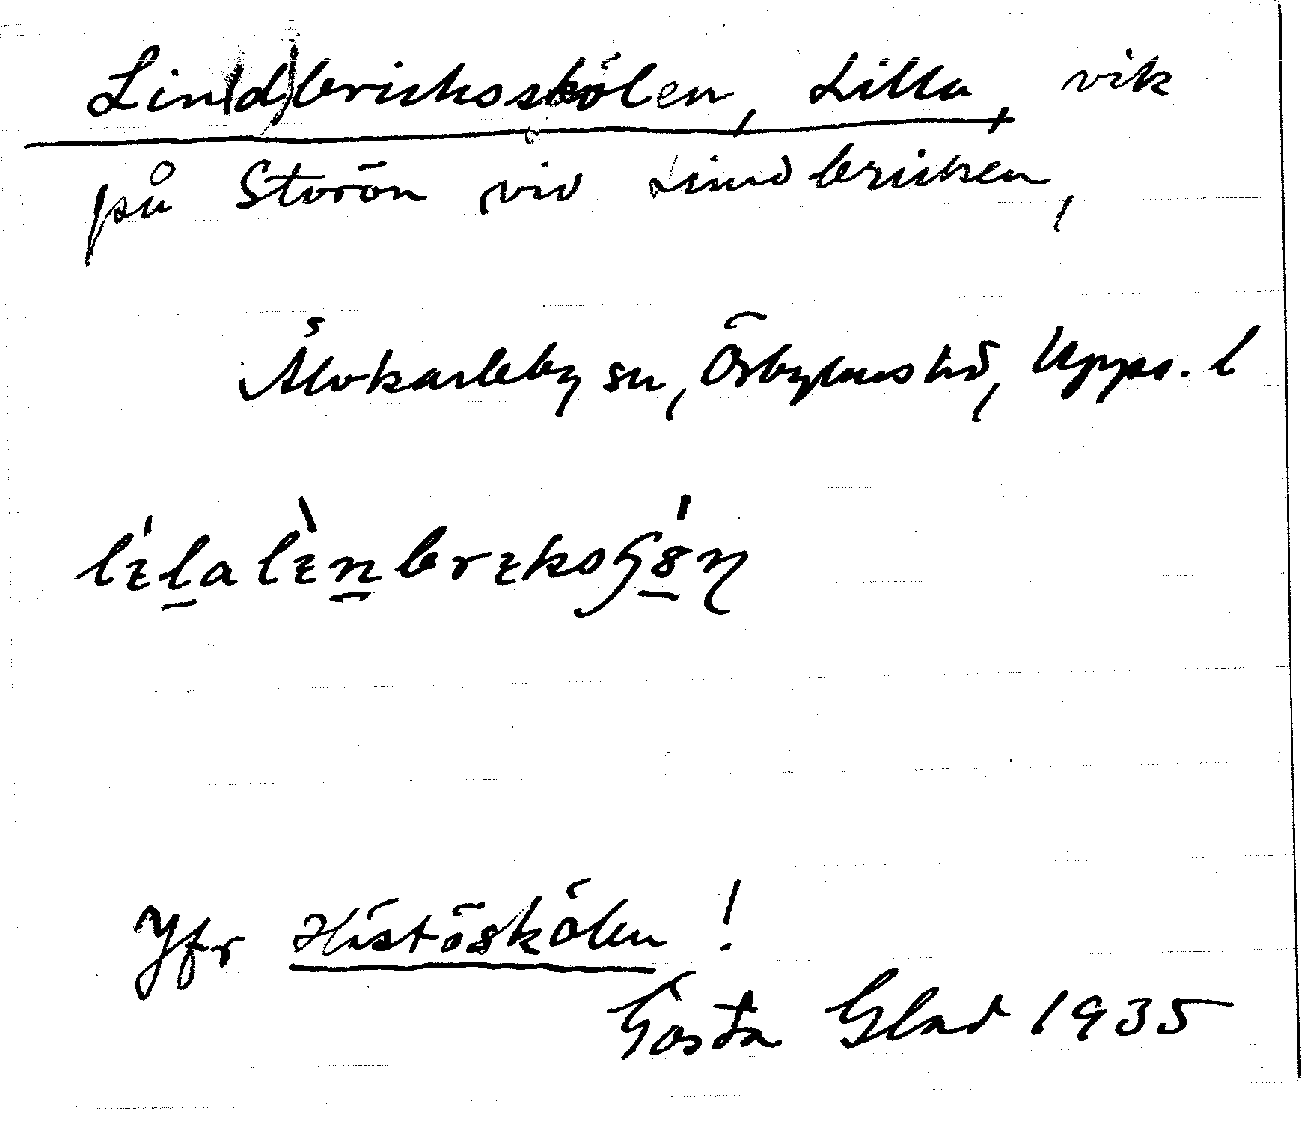 Lin(d)briksskölen, Lilla, vik
på Storön vid Lindbriken,
Älvkarleby sn, Örbyhus hd, Upps. l
Jfr Histöskölen!
Gösta Glad 1935